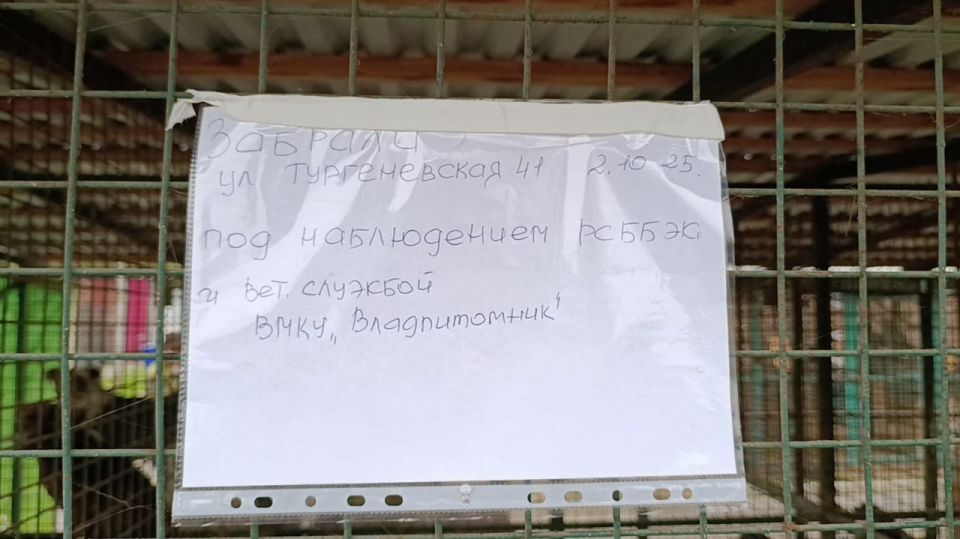 ЗАБРАЛИ
ул Тургеневская 41 2.10.25.
под наблюдением РСББЖ
и Вет. службой
ВМКУ „Владпитомник"